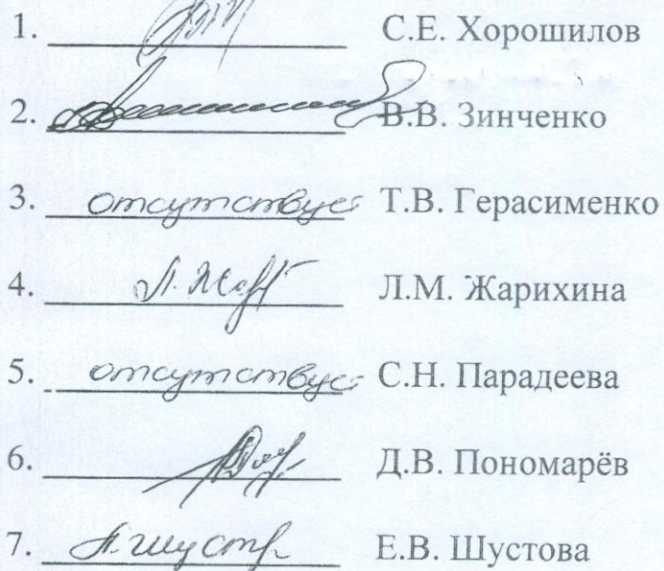 1. С.Е. Хорошилов
2. В.В. Зинченко
3. отсутствует Т.В. Герасименко
4. Л.М. Жарихина
5. отсутствует С.Н. Парадеева
6. Д.В. Пономарёв
7. Е.В. Шустова